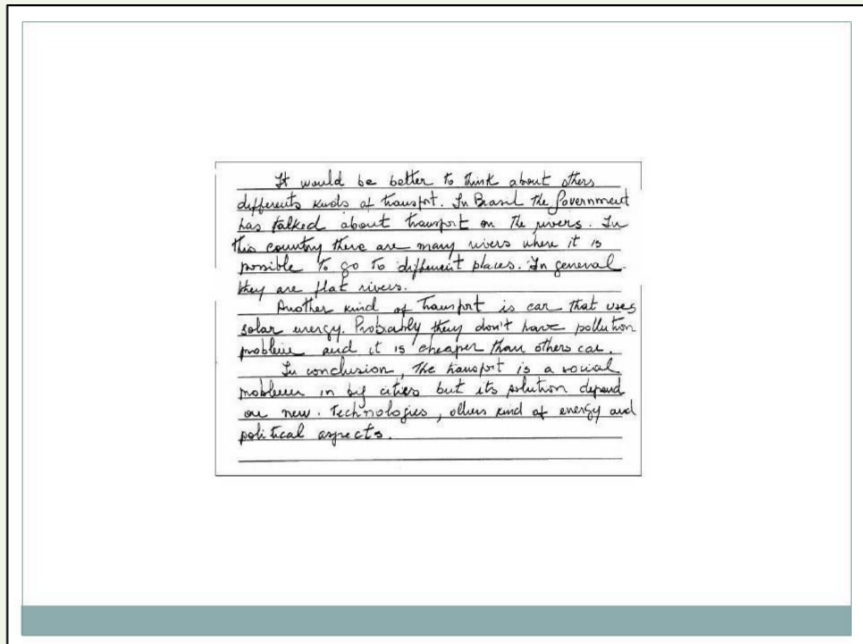 It would be better to think about others
differents kinds of transport. In Brazil the Government
has talked about transport on the rivers. In
this country there are many rivers where it is
possible to go to different places. In general
they are flat rivers.
Another kind of transport is car that uses
solar energy. Probably they don't have pollution
and it is cheaper than others car.
In conclusion, the transport is a social
in big cities but its solution depend
on new. Technologies, others kind of energy and
political aspects.